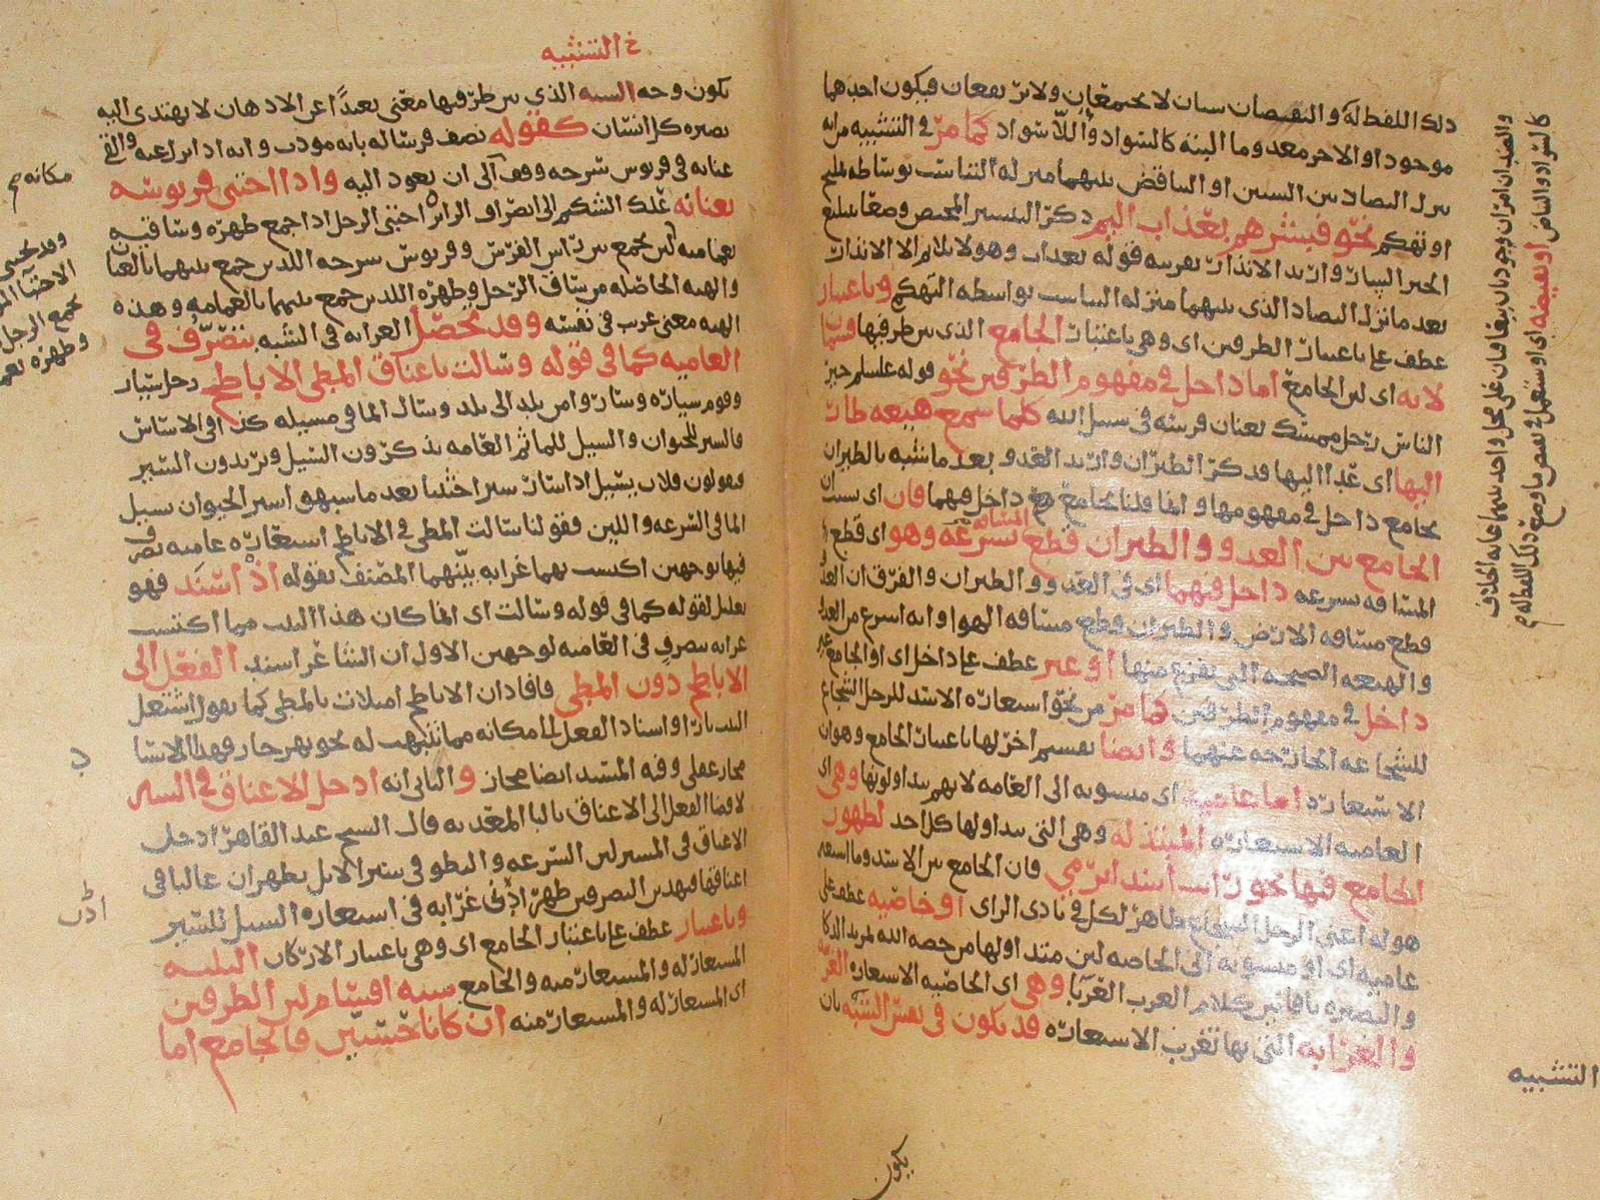 ذلك اللفظ له والنقيضان شيئان لا يجتمعان ولا يرتفعان فيكون احدهما
موجودا والاخر معدوما البتة كالسواد واللاسواد كما مر في التشبيه من انه
ينزل التضاد بين الشيئين او التناقض بينهما منزلة التناسب بوساطة تمليح
او تهكم نحو فبشرهم بعذاب اليم ذكر التبشير
الخبر السار واريد الانذار بقرينة قوله بعذاب وهو لا يلائم الا الانذار
بعد ما نزل التضاد الذي بينهما منزلة التناسب بواسطة التهكم وباعتبار
عطف على باعتبار الطرفين اي وهي باعتبار الجامع الذي بين طرفيها قسمان
لانه اي لان الجامع اما داخل في مفهوم الطرفين نحو قوله عليه السلم خير
الناس رجل ممسك بعنان فرسه في سبيل الله كلما سمع هيعة طار
اليها اي غدا اليها فذكر الطيران واريد العدو بعد ما شبه بالطيران
بجامع داخل في مفهومهما وانما قلنا بجامع داخل فيهما فان
الجامع بين العدو والطيران قطع المسافة بسرعة وهو اي قطع
المسافة بسرعة داخل فيهما اي في العدو والطيران والفرق ان العدو
قطع مسافة الارض والطيران قطع مسافة الهوا وانه اسرع من العدو
والهيعة الصيحة التي يفزع منها او غير عطف على داخل اي او الجامع غير
داخل في مفهوم الطرفين كما مر من نحو استعارة الاسد للرجل الشجاع
للشجاعة الخارجة عنهما وايضا تقسيم اخر لها باعتبار الجامع وهو ان
الاستعارة اما عامية اي منسوبة الى العامة لانهم يتداولونها وهي اي
العامية الاستعارة المبتذلة وهي التي يتداولها كل احد لظهور
الجامع فيها نحو رايت اسدا يرمي فان الجامع بين الاسد وما استعير
هو له اعني الرجل الشجاع ظاهر لكل في بادى الراى او خاصية عطف على
عامية اي او منسوبة الى الخاصة لان مبتداولها من خصه الله بمزيد الذكا
والتبصرة بافانين كلام العرب العربا وهي اي الخاصية الاستعارة الغريبة
والغرابة التي بها تغرب الاستعارة قد يكون في نفس الشبه بان
والضدان امران وجوديان يتعاقبان على محل واحد بينهما غاية الخلاف
كالسواد والبياض او نقيضه اي او استعمل في نقيض ما وضع ذلك اللفظ له م
التشبيه
يكون
خ التشبيه
يكون وجه الشبه الذي بين طرفيها معنى بعيدا عن الاذهان لا يهتدى اليه
بصيرة كل انسان كقوله نصف فرسا له بانه مودب وانه اذا نزل عنه والقى
عنانه في قربوس سرجه وقف الى ان يعود اليه واذا احتبى قربوسه
بعنانه علك الشكيم الى انصراف الزائر احتبى الرجل اذا جمع ظهره وساقيه
بعمامته لمن يجمع بين راس الفرس وقربوس سرجه اللذين جمع بينهما بالعنان
والهيئة الحاصلة من ساق الرجل وظهره اللذين جمع بينهما بالعمامة وهذه
الهيئة معنى غريب في نفسه وقد تحصل الغرابة في الشبه بتصرف في
العامية كما في قوله وسالت باعناق المطي الاباطح رجل سيار
وقوم سيارة وسار وامن بلد الى بلد وسال الما في مسيله كذا في الاساس
فالسير للحيوان والسيل للما ثم العامة يذكرون السيل ويريدون السير
فيقولون فلان يسيل اذا سار سيرا حثيثا بعد ما شبهوا سير الحيوان بسيل
الما في السرعة واللين فقولنا سالت المطي في الاباطح استعارة عامية تصرف
فيها بوجهين اكتسب بهما غرابة بينهما المصنف بقوله اذ اسند فهو
تعليل لقوله كما في قوله وسالت اي انما كان هذا البيت مما اكتسب
غرابة بتصرف في العامية لوجهين الاول ان الشاعر اسند الفعل الى
الاباطح دون المطي فافاد ان الاباطح امتلات بالمطي كما يقول اشتعل
البيت نارا واسناد الفعل لمكانه مما تنبهت له نحو نهر جار فهذا الاسناد
مجاز عقلي وفي المسند ايضا مجاز والثاني انه ادخل الاعناق في السير
لاقتضا الفعل الى الاعناق بالبا المعدية قال الشيخ عبد القاهر ادخل
الاعناق في السير لان السرعة والبطو في سير الابل يظهران غالبا في
اعناقها فبهذين التصرفين ظهر ادنى غرابة في استعارة السيل للسير
وباعتبار عطف على باعتبار الجامع اي وهي باعتبار الاركان الثلثة
المستعار له والمستعار منه والجامع ستة اقسام لان الطرفين
اي المستعار له والمستعار منه ان كانا حسيين فالجامع اما
مكانه صح